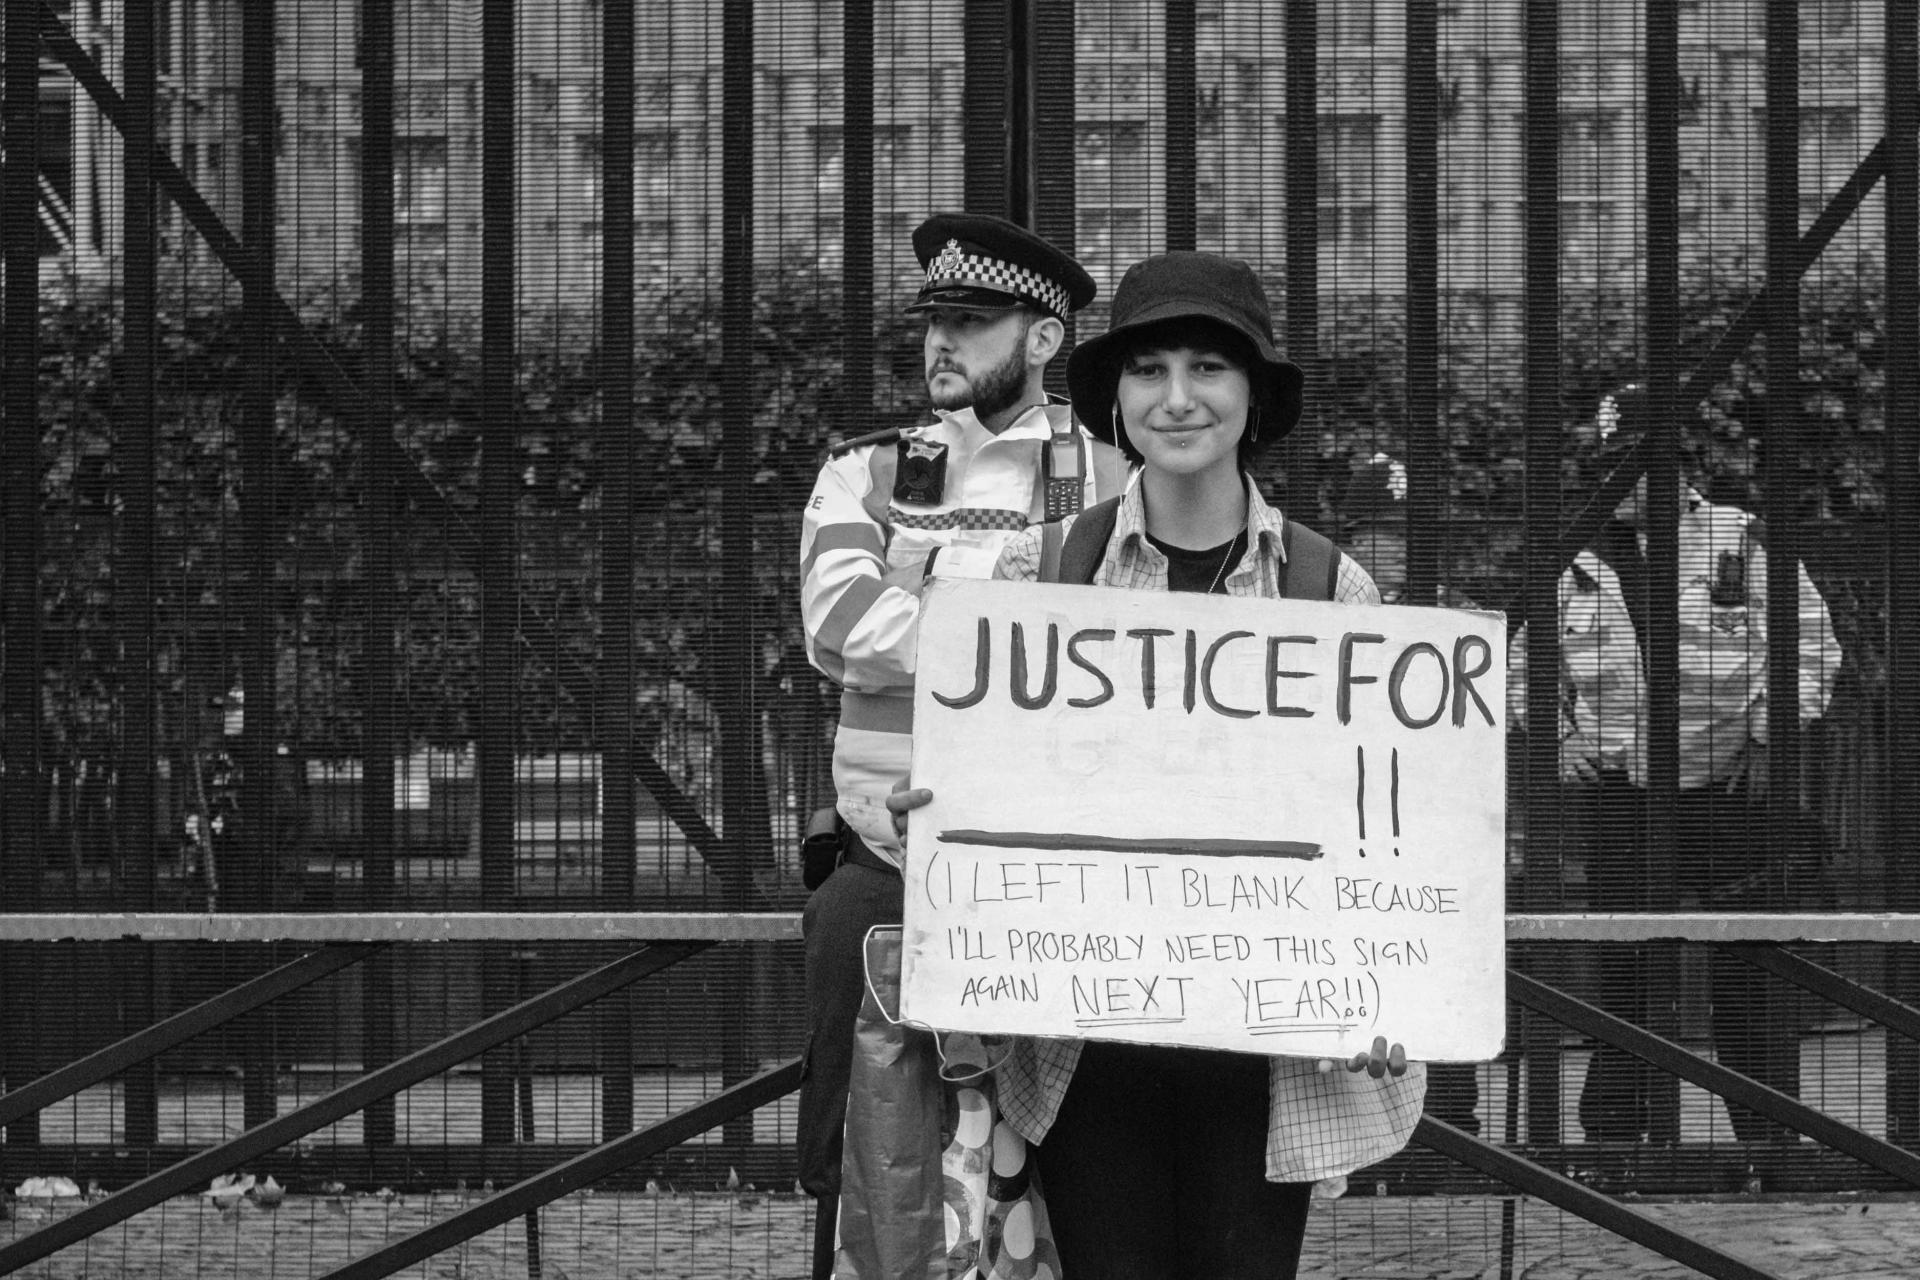 JUSTICE FOR
__________ !!
(I LEFT IT BLANK BECAUSE
I'LL PROBABLY NEED THIS SIGN
AGAIN NEXT YEAR!!)